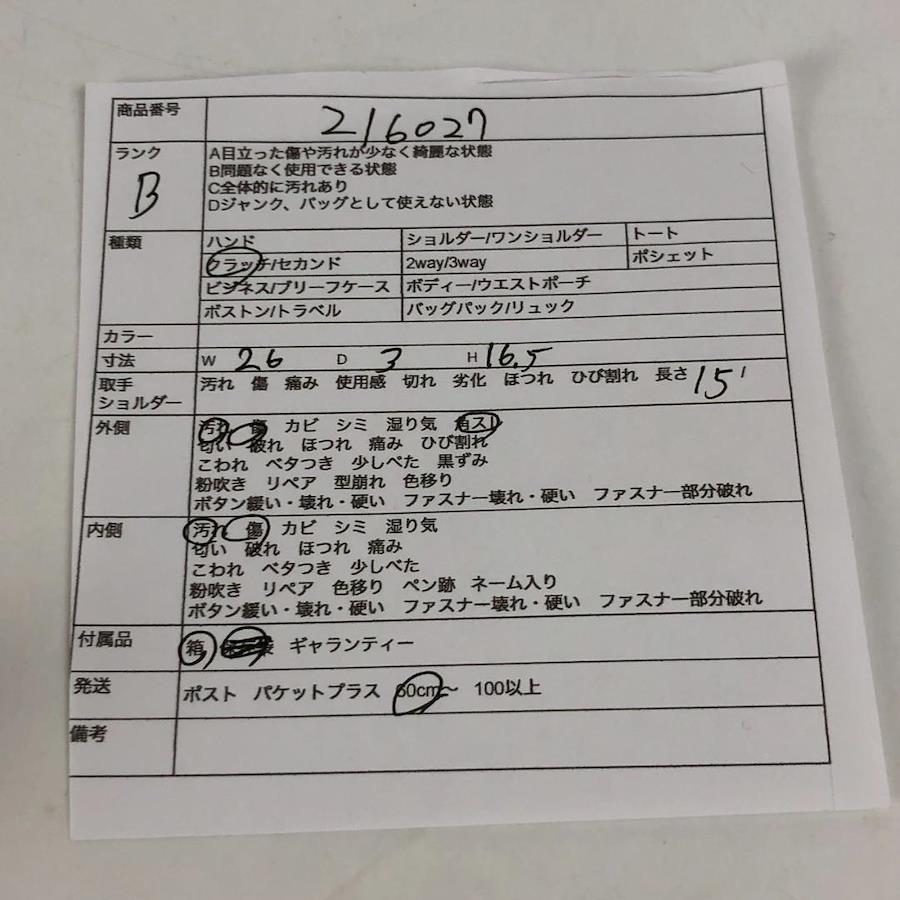 商品番号 216027
ランク B
A目立った傷や汚れが少なく綺麗な状態
B問題なく使用できる状態
C全体的に汚れあり
Dジャンク、バッグとして使えない状態
種類 ハンド ショルダー/ワンショルダー トート
クラッチ/セカンド 2way/3way ポシェット
ビジネス/ブリーフケース ボディー/ウエストポーチ
ボストン/トラベル バッグパック/リュック
カラー
寸法 W 26 D 3 H 16.5
取手 汚れ 傷 痛み 使用感 切れ 劣化 ほつれ ひび割れ 長さ 15
ショルダー
外側 汚れ 傷 カビ シミ 湿り気 角スレ
匂い 破れ ほつれ 痛み ひび割れ
こわれ ベタつき 少しべた 黒ずみ
粉吹き リペア 型崩れ 色移り
ボタン緩い・壊れ・硬い ファスナー壊れ・硬い ファスナー部分破れ
内側 汚れ 傷 カビ シミ 湿り気
匂い 破れ ほつれ 痛み
こわれ ベタつき 少しべた
粉吹き リペア 色移り ペン跡 ネーム入り
ボタン緩い・壊れ・硬い ファスナー壊れ・硬い ファスナー部分破れ
付属品 箱 ギャランティー
発送 ポスト パケットプラス 60cm〜 100以上
備考